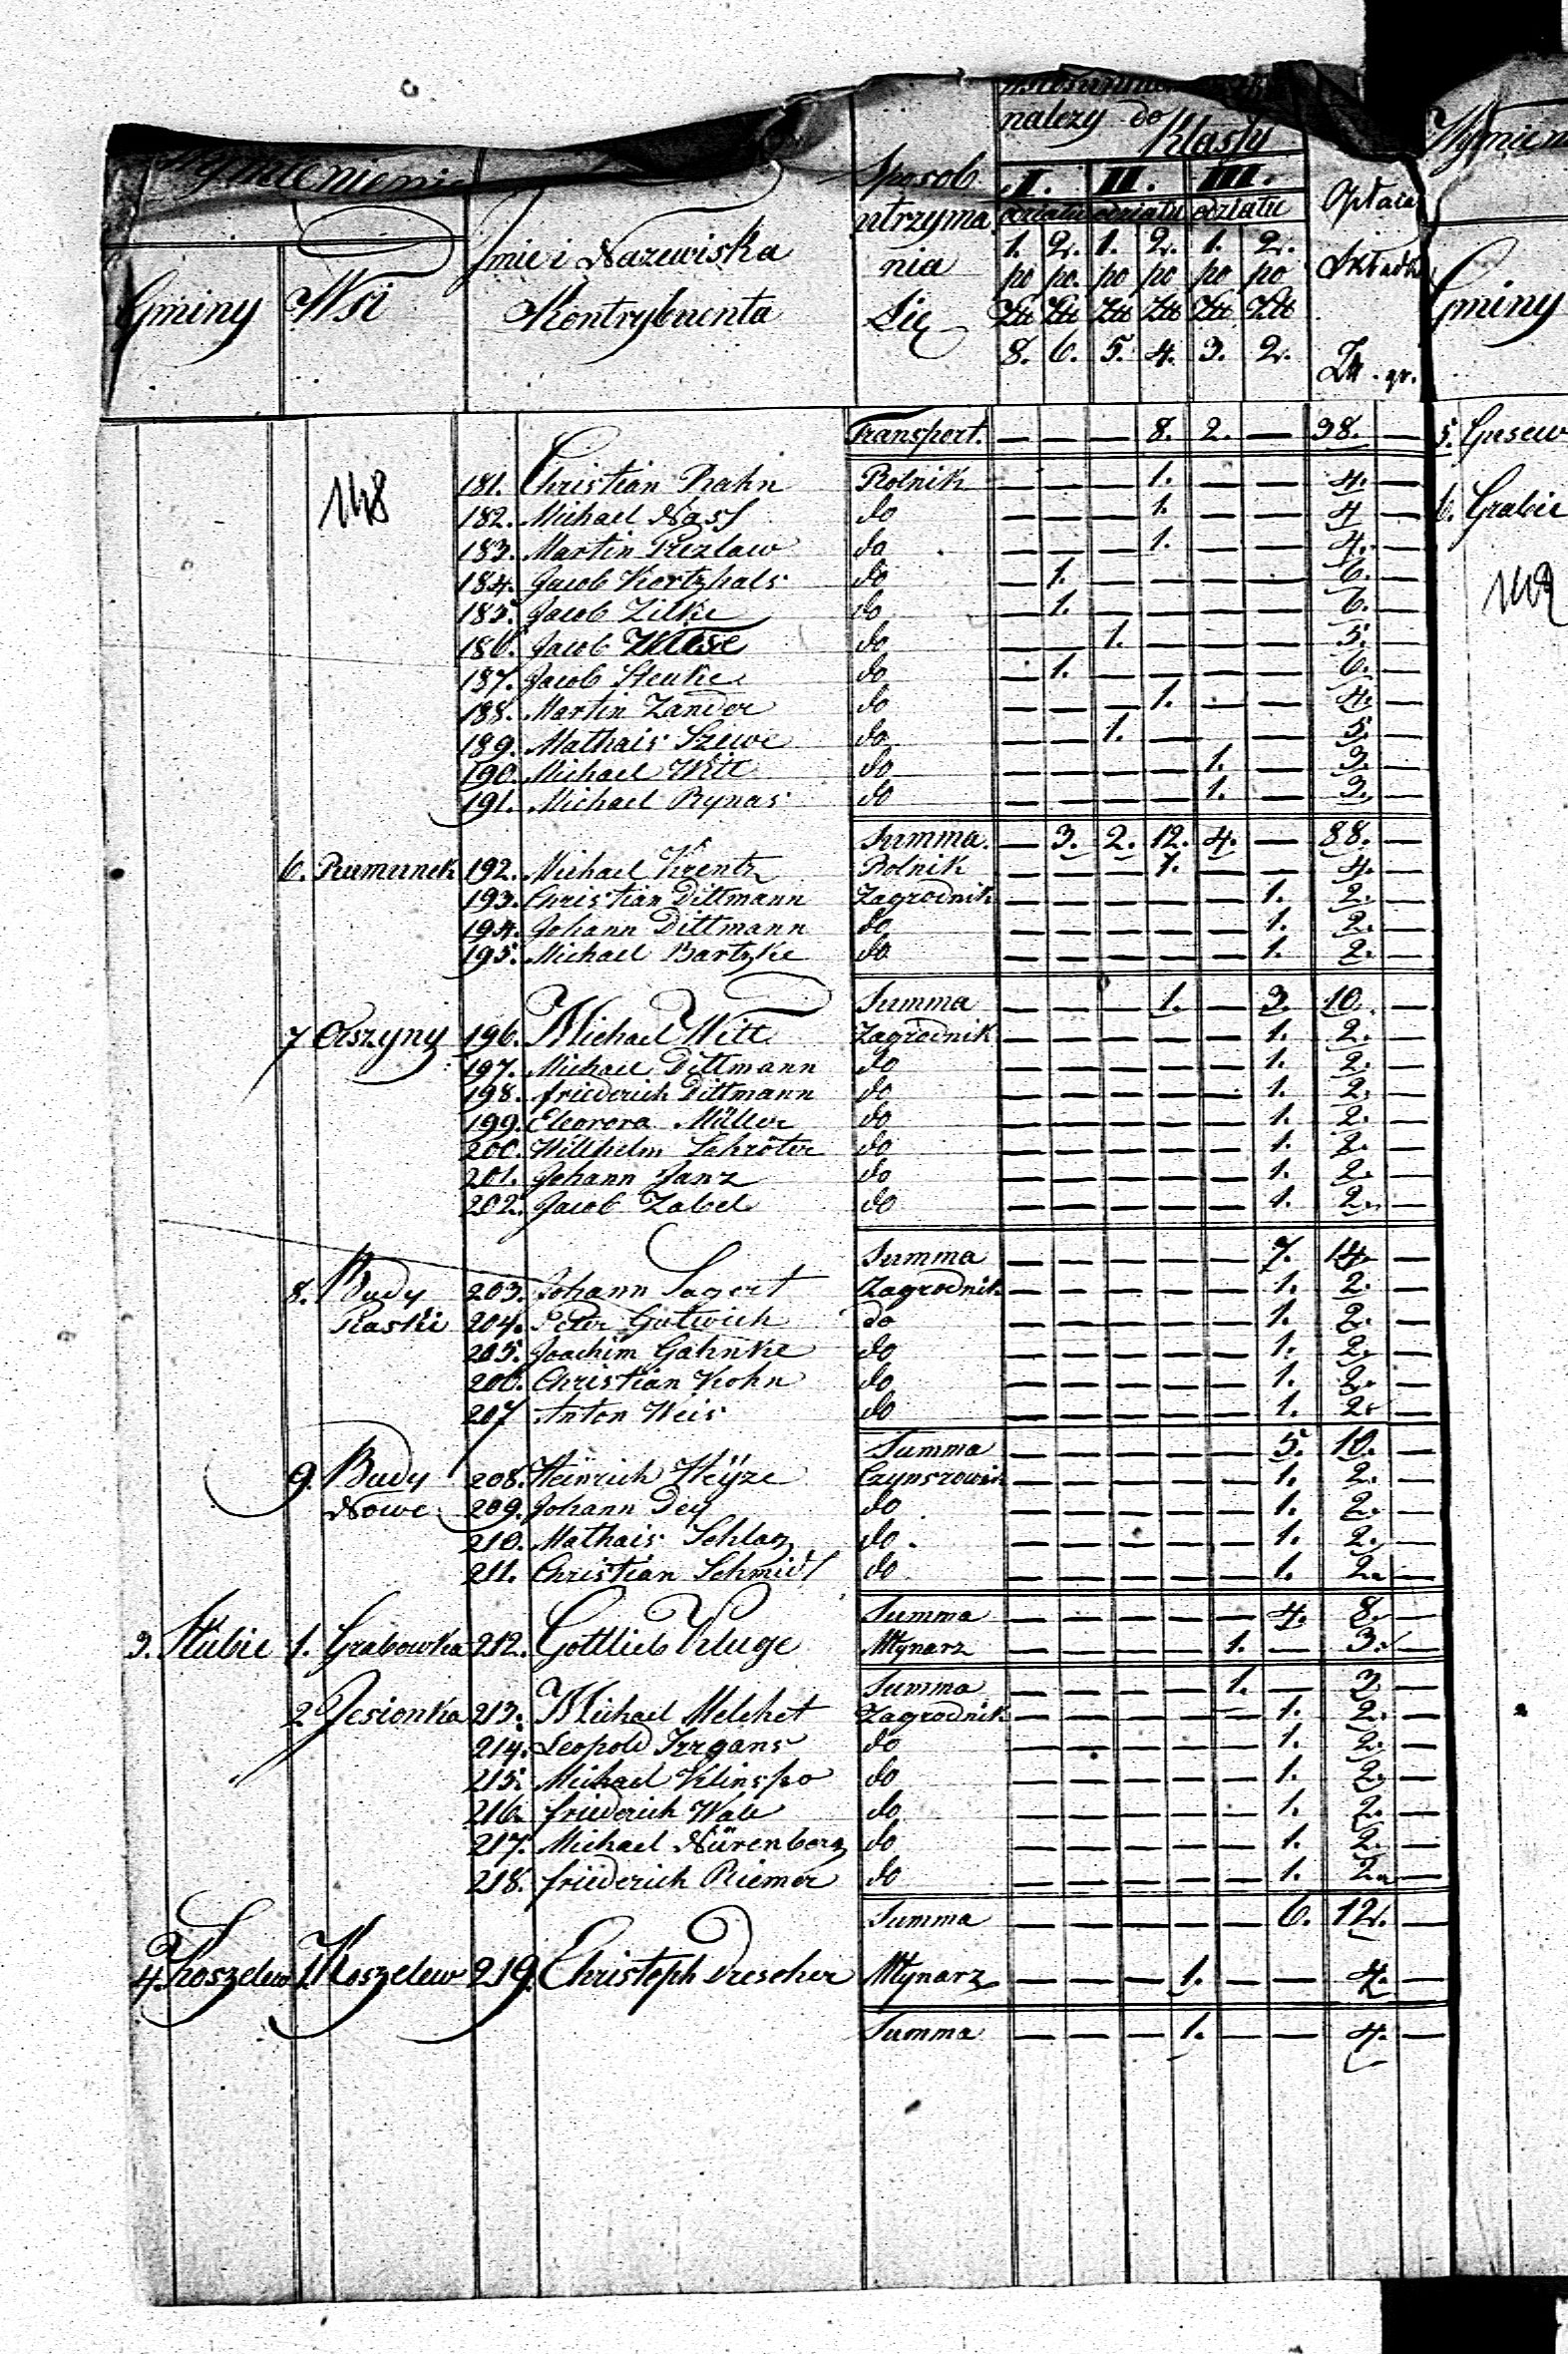 należy do
Klassy
Sposób utrzymania Się
I. II. III.
działu działu działu
1. 2. 1. 2. 1. 2.
po po po po po po
Złt Złt Złt Złt Złt Złt
8. 6. 5. 4. 3. 2.
Opłaca Składki
Złt. gr.
Gminy Wsi Jmie i Nazewiska Kontrybuenta
Gminy
Transport. — — — 8. 2. — 38. —
148
181. Christian Rahn Rolnik — — — 1. — — 4. —
182. Michael Nass do — — — 1. — — 4 —
183. Martin Prezlaw do — — — 1. — — 4. —
184. Jacob Kortzhals do — 1. — — — — 6. —
185. Jacob Zilke do — 1. — — — — 6. —
186. Jacob Wiese do — — 1. — — — 5. —
187. Jacob Steuke do — 1. — — — — 6. —
188. Martin Zander do — — — 1. — — 4. —
189. Mathais Szewe do — — 1. — — — 5. —
190. Michael Witt do — — — — 1. — 3. —
191. Michael Rynas do — — — — 1. — 3. —
Summa. — 3. 2. 12. 4. — 88. —
6. Rumunek 192. Michael Krentz Rolnik — — — 1. — — 4. —
193. Christian Dittmann Zagrodnik — — — — — 1. 2. —
194. Johann Dittmann do — — — — — 1. 2. —
195. Michael Bartzke do — — — — — 1. 2. —
Summa — — — 1. — 3. 10. —
7 Olszyny 196. Michael Witt Zagrodnik — — — — — 1. 2. —
197. Michael Dittmann do — — — — — 1. 2. —
198. Friederich Dittmann do — — — — — 1. 2. —
199. Eleorora Müller do — — — — — 1. 2. —
200. Willhelm Schröter do — — — — — 1. 2. —
201. Johann Janz do — — — — — 1. 2. —
202. Jacob Zabel do — — — — — 1. 2. —
Summa — — — — — 7. 14. —
8. Budy 203. Johann Sagert Zagrodnik — — — — — 1. 2. —
Piaski 204. Peter Gutwich do — — — — — 1. 2. —
205. Joachim Gahnke do — — — — — 1. 2. —
206. Christian Kohn do — — — — — 1. 2. —
207 Anton Weis do — — — — — 1. 2. —
Summa — — — — — 5. 10. —
9. Budy 208. Heinrich Heÿze Czynszownik — — — — — 1. 2. —
Nowe 209. Johann Dey do — — — — — 1. 2. —
210. Mathais Schlag do — — — — — 1. 2. —
211. Christian Schmidt do — — — — — 1. 2. —
Summa — — — — — 4. 8. —
3. Słubie 1. Grabowka 212. Gottlieb Kluge Młynarz — — — — 1. — 3. —
Summa — — — — 1. — 3 —
2. Jesionka 213. Michael Melchet Zagrodnik — — — — — 1. 2. —
214. Leopold Irrgans do — — — — — 1. 2. —
215. Michael do — — — — — 1. 2. —
216. Friederich Wall do — — — — — 1. 2. —
217. Michael Nürenberg do — — — — — 1. 2. —
218. Friederich Riemer do — — — — — 1. 2. —
Summa — — — — — 6. 12. —
4. Koszelew 1. Koszelew 219. Christoph Drescher Młynarz — — — 1. — — 4. —
Summa — — — 1. — — 4. —
5. Gusew
6. Grabie
149